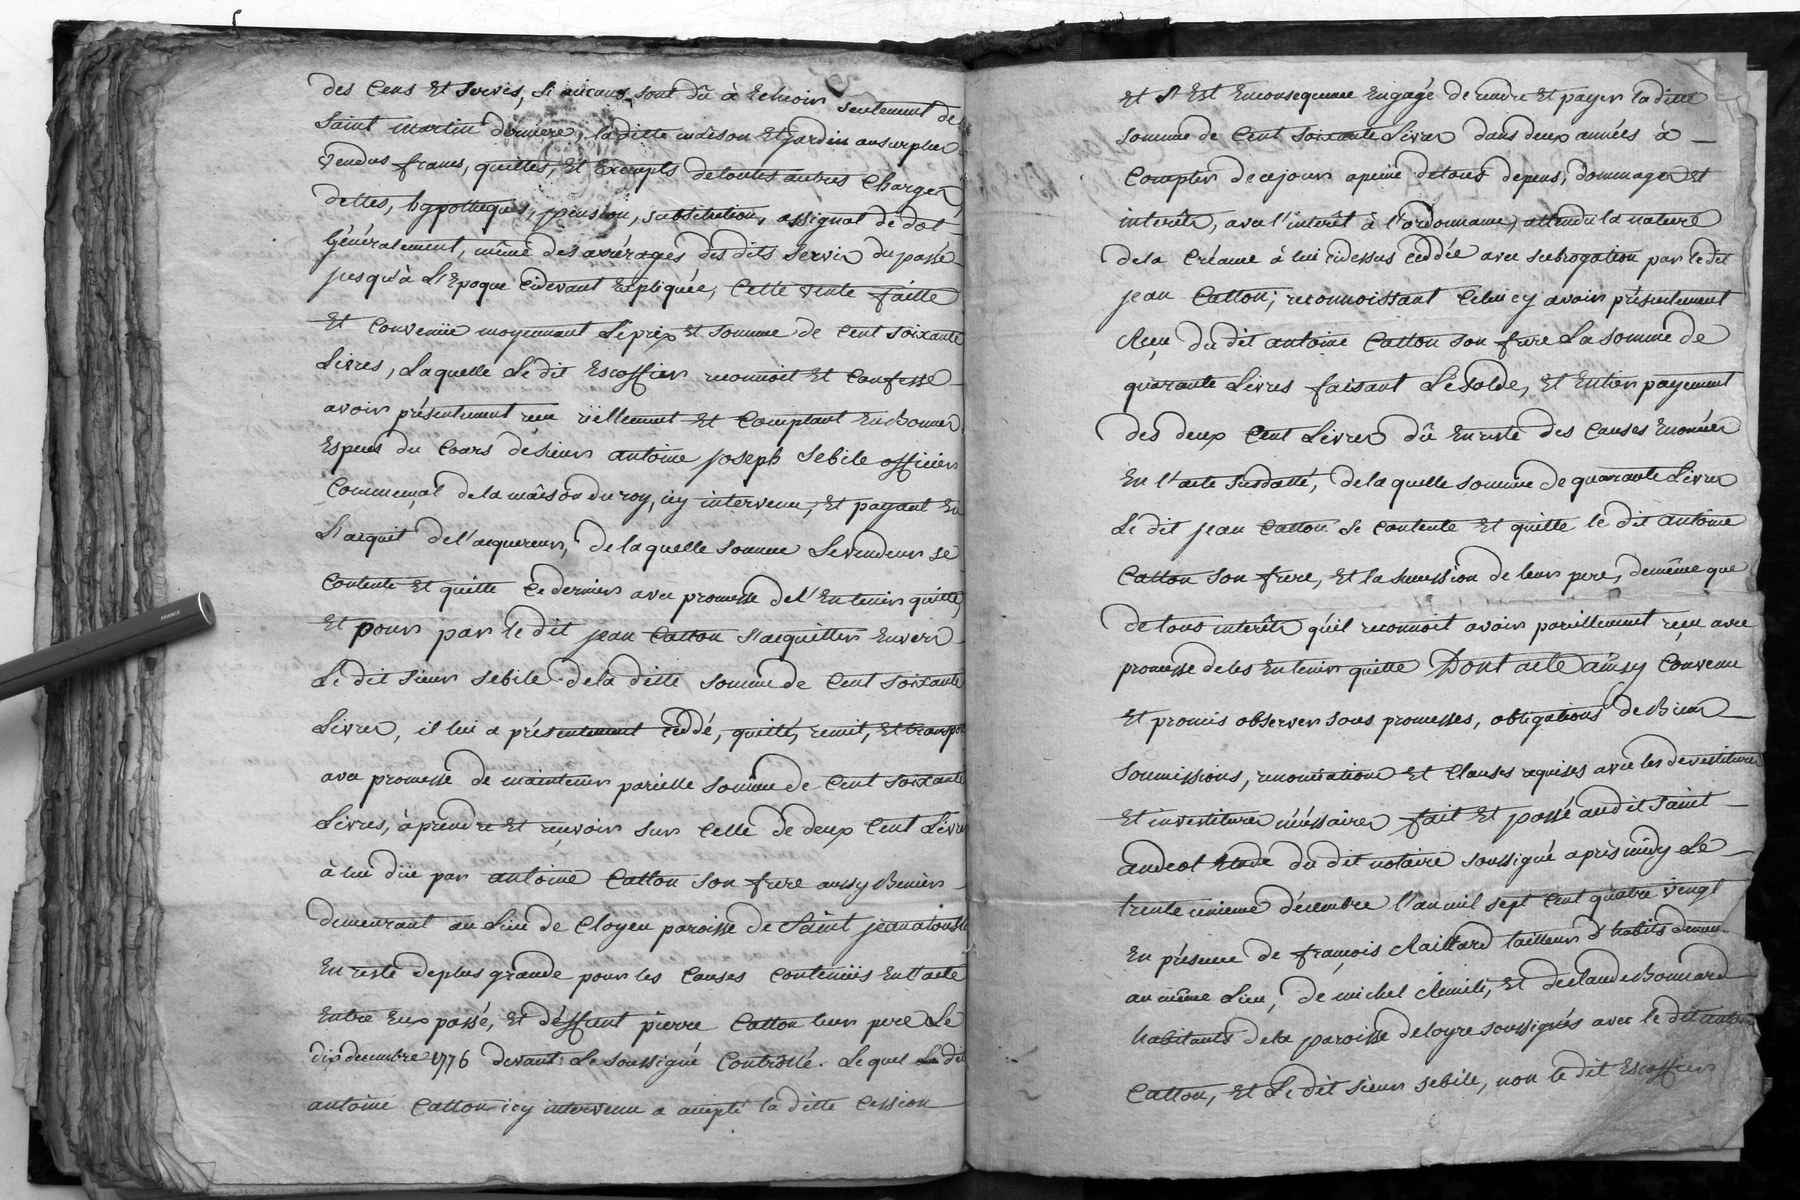 des Cens Et servis, si aucuns sont dû à Echeoir seulement de
Saint martin derniere, la ditte maison Et Jardin au surplus
vendus francs, quittes, Et Exempts de toutes autres Charges
dettes, hypotheques, pension, substitution, assignat de dot
Généralement, même des arrérages des dits servis du passé
jusqu'à L'Epoque cidevant Expliquée, Cette vente faitte
Et Convenüe moyennant Le prix Et somme de Cent soixante
Livres, Laquelle Le dit Escoffier reconnoit Et Confesse
avoir présentement reçu réellement Et Comptant En Bonnes
Especes du Cours de sieur antoine joseph Sebile officier
Commensal de la maison du roy, icy intervenu, Et payant En
L'acquit de l'acquereur, de laquelle somme Le vendeur se
Contente Et quitte Ce dernier avec promesse de l'En tenir quitte,
Et pour par le dit jean Catton s'acquitter Envers
Le dit Sieur Sebile de la ditte somme de Cent soixante
Livres, il lui a présentement céddé, quitté, remit, Et transpor
avec promesse de maintenir pareille somme de Cent soixante
Livres, à prendre Et reçevoir sur Celle de deux Cent Livres
à lui düe par antoine Catton son frere aussy
demeurant au Lieu de Cloyen paroisse de Saint jean
En reste de plus grande pour les Causes Contenües En l'acte
Entre Eux passé, Et deffunt pierre Catton leur pere Le
dix decembre 1776 devant Le soussigné Controllé. Lequel Le dit
antoine Catton icy intervenu a accepté la ditte Cession
Et s'Est En consequence Engagé de rendre Et payer la ditte
somme de Cent soixante Livres dans deux années à
Compter de ce jour a peine de tous depens, dommages Et
interêts, avec l'interêt à l'ordonnance, attendu la nature
de la Créance à lui cidessus céddée avec subrogation par le dit
jean Catton; reconnoissant Celui cy avoir présentement
Reçu du dit antoine Catton son frere La somme de
quarante Livres faisant Le solde, Et Entier payement
des deux Cent Livres dû En reste des Causes Enoncées
En l'acte susdatté, de laquelle somme de quarante Livres
Le dit jean Catton se contente Et quitte le dit antoine
Catton son frere, Et la succession de leur pere, de même que
de tous interêts qu'il reconnoit avoir pareillement reçu avec
promesse de les En tenir quitte Dont acte ainsy Convenu
Et promis observer sous promesses, obligations de Biens
soumissions, renonciations Et Clauses requises avec les devestitures
Et investitures nécéssaires fait Et passé audit Saint
andeol Etude du dit notaire soussigné après midy Le
trente unieme décembre l'an mil sept Cent quatre vingt
En présence de françois Maillard tailleur d'habits demeu
au même Lieu, de michel, Et de claude Bonnard
habitants de la paroisse de loyre soussignés avec le dit antoine
Catton, Et Le dit sieur sebile, non le dit Escoffier
FRANCE